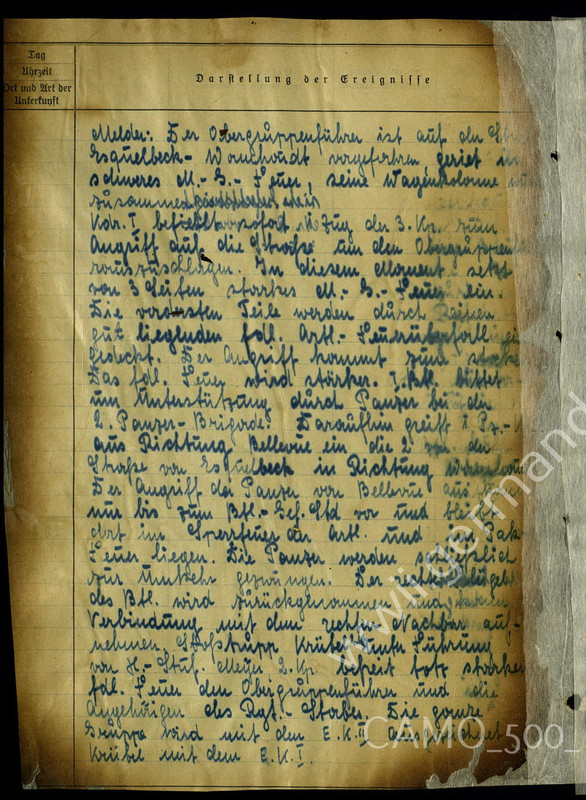 Tag
Uhrzeit
Ort und Art der
Unterkunft
Darstellung der Ereignisse
Melder: Der Obergruppenführer ist auf der
Esquelbeck - Wormhoudt vorgefahren geriet in
schweres M.-G.-Feuer, seine Wagenkolonne
zusammengeschossen
Kdr. I. befiehlt sofort Zug der 3. Kp. zum
Angriff auf die Straße um den
rauszuschlagen. In diesem Moment setzt
von 3 Seiten starkes M.-G.-Feuer ein.
Die vordersten Teile werden durch
gut liegenden fdl. Artl.-Feuerüberfall
gedeckt. Der Angriff kommt zum
Das fdl. Feuer wird stärker. I. Btl. bittet
um Unterstützung durch Panzer bei der
2. Panzer-Brigade. Daraufhin greift
aus Richtung Bellevue ein die 2. der
Straße von Esquelbeck in Richtung
Der Angriff der Panzer von Bellevue aus
nur bis zum Btl.-Gef. Std vor und bleibt
dort im Sperrfeuer der Artl. und Pak
Feuer liegen. Die Panzer werden
zur Umkehr gezwungen. Der
des Btl. wird zurückgenommen und
Verbindung mit dem rechten Nachbar auf-
nehmen. Stoßtrupp Krübel unter Führung
von H.-Stuf. Meyer 2. Kp. befreit trotz starken
fdl. Feuer den Obergruppenführer und die
Angehörigen des Rgt.-Stabes. Die ganze
Gruppe wird mit dem E.K. II ausgezeichnet
Krübel mit dem E.K. I.
www.wwiigermand
CAMO_500_